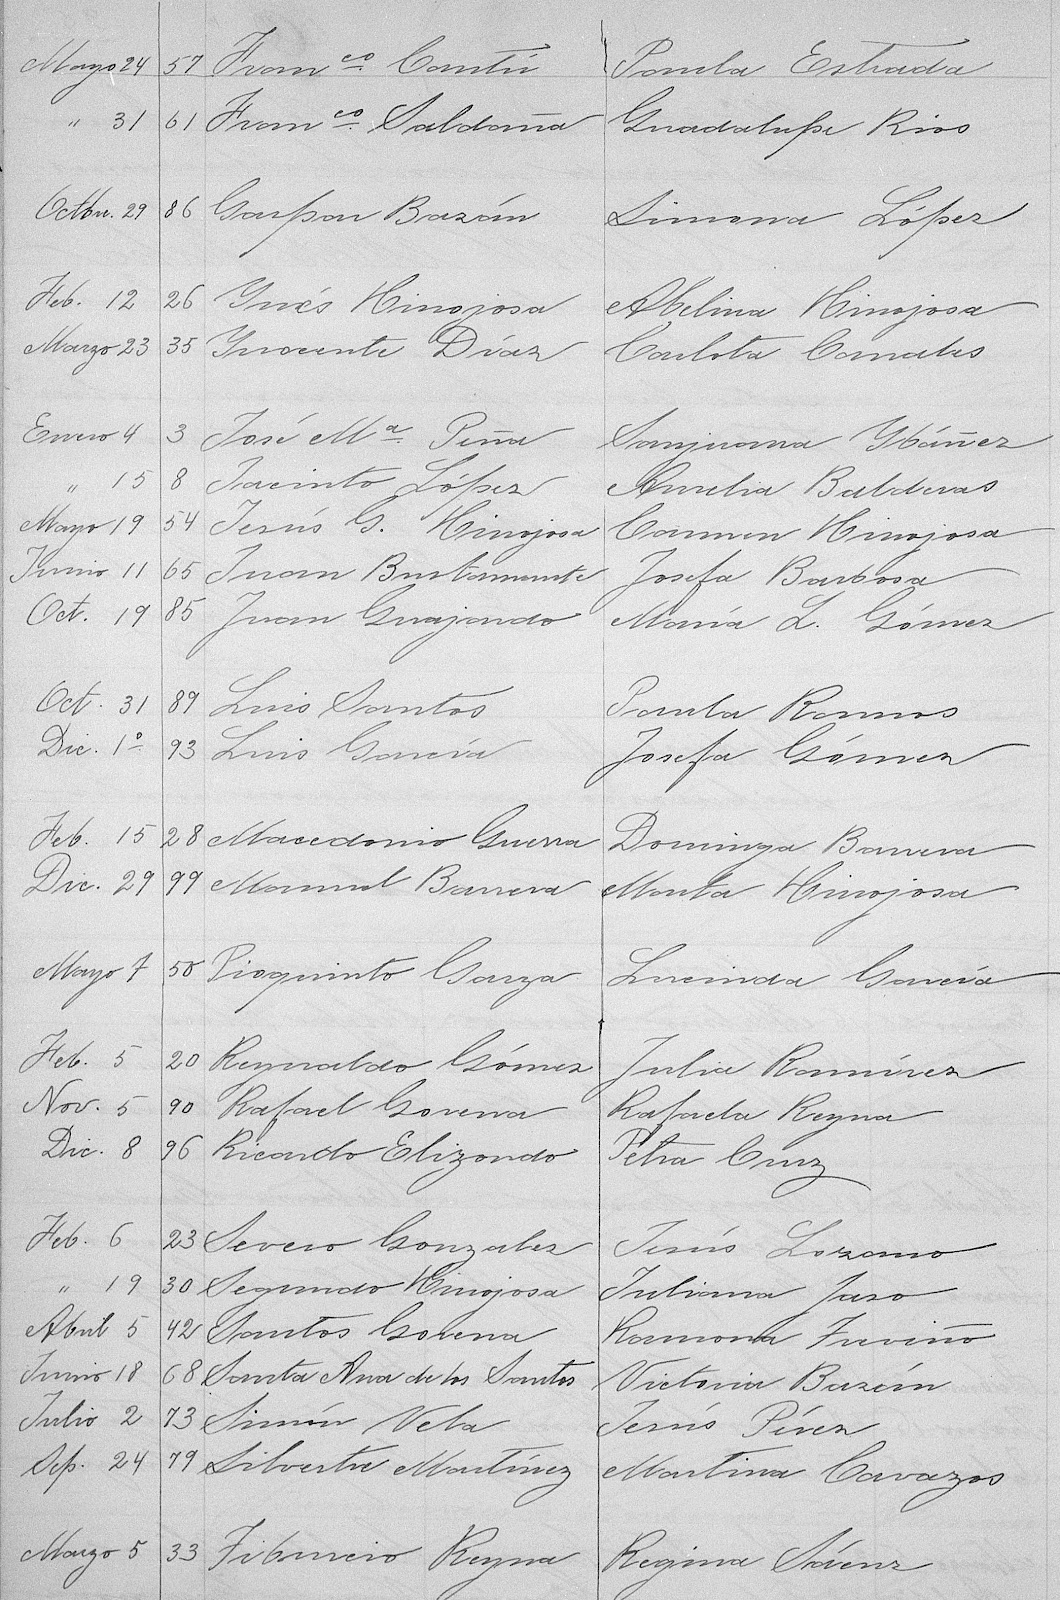 Mayo 24 57 Franco. Cantú Paula Estrada
" 31 61 Franco. Saldaña Guadalupe Rios
Octbre. 29 86 Gaspar Bazán Simona López
Feb. 12 26 Ynés Hinojosa Abelina Hinojosa
Marzo 23 35 Ynocente Díaz Carlota Canales
Enero 4 3 José Ma. Peña Sanjuana Ybáñez
" 15 8 Jacinto López Aurelia Balderas
Mayo 19 54 Jesús G. Hinojosa Carmen Hinojosa
Junio 11 65 Juan Bustamante Josefa Barbosa
Oct. 19 85 Juan Guajardo María L. Gómez
Oct. 31 89 Luis Santos Paula Ramos
Dic. 1o. 93 Luis García Josefa Gómez
Feb. 15 28 Macedonio Guerra Dominga Barrera
Dic. 29 99 Manuel Barrera Marta Hinojosa
Mayo 7 50 Pioquinto Garza Lucinda García
Feb. 5 20 Reynaldo Gómez Julia Ramírez
Nov. 5 90 Rafael Gorena Rafaela Reyna
Dic. 8 96 Ricardo Elizondo Petra Cruz
Feb. 6 23 Severo Gonzalez Jesús Lozano
" 19 30 Segundo Hinojosa Juliana Jaso
Abril 5 42 Santos Gorena Ramona Treviño
Junio 18 68 Santa Ana de los Santos Victoria Bazán
Julio 2 73 Simón Vela Jesús Pérez
Sep. 24 79 Silvestre Martínez Martina Cavazos
Marzo 5 33 Tiburcio Reyna Regina Sáenz